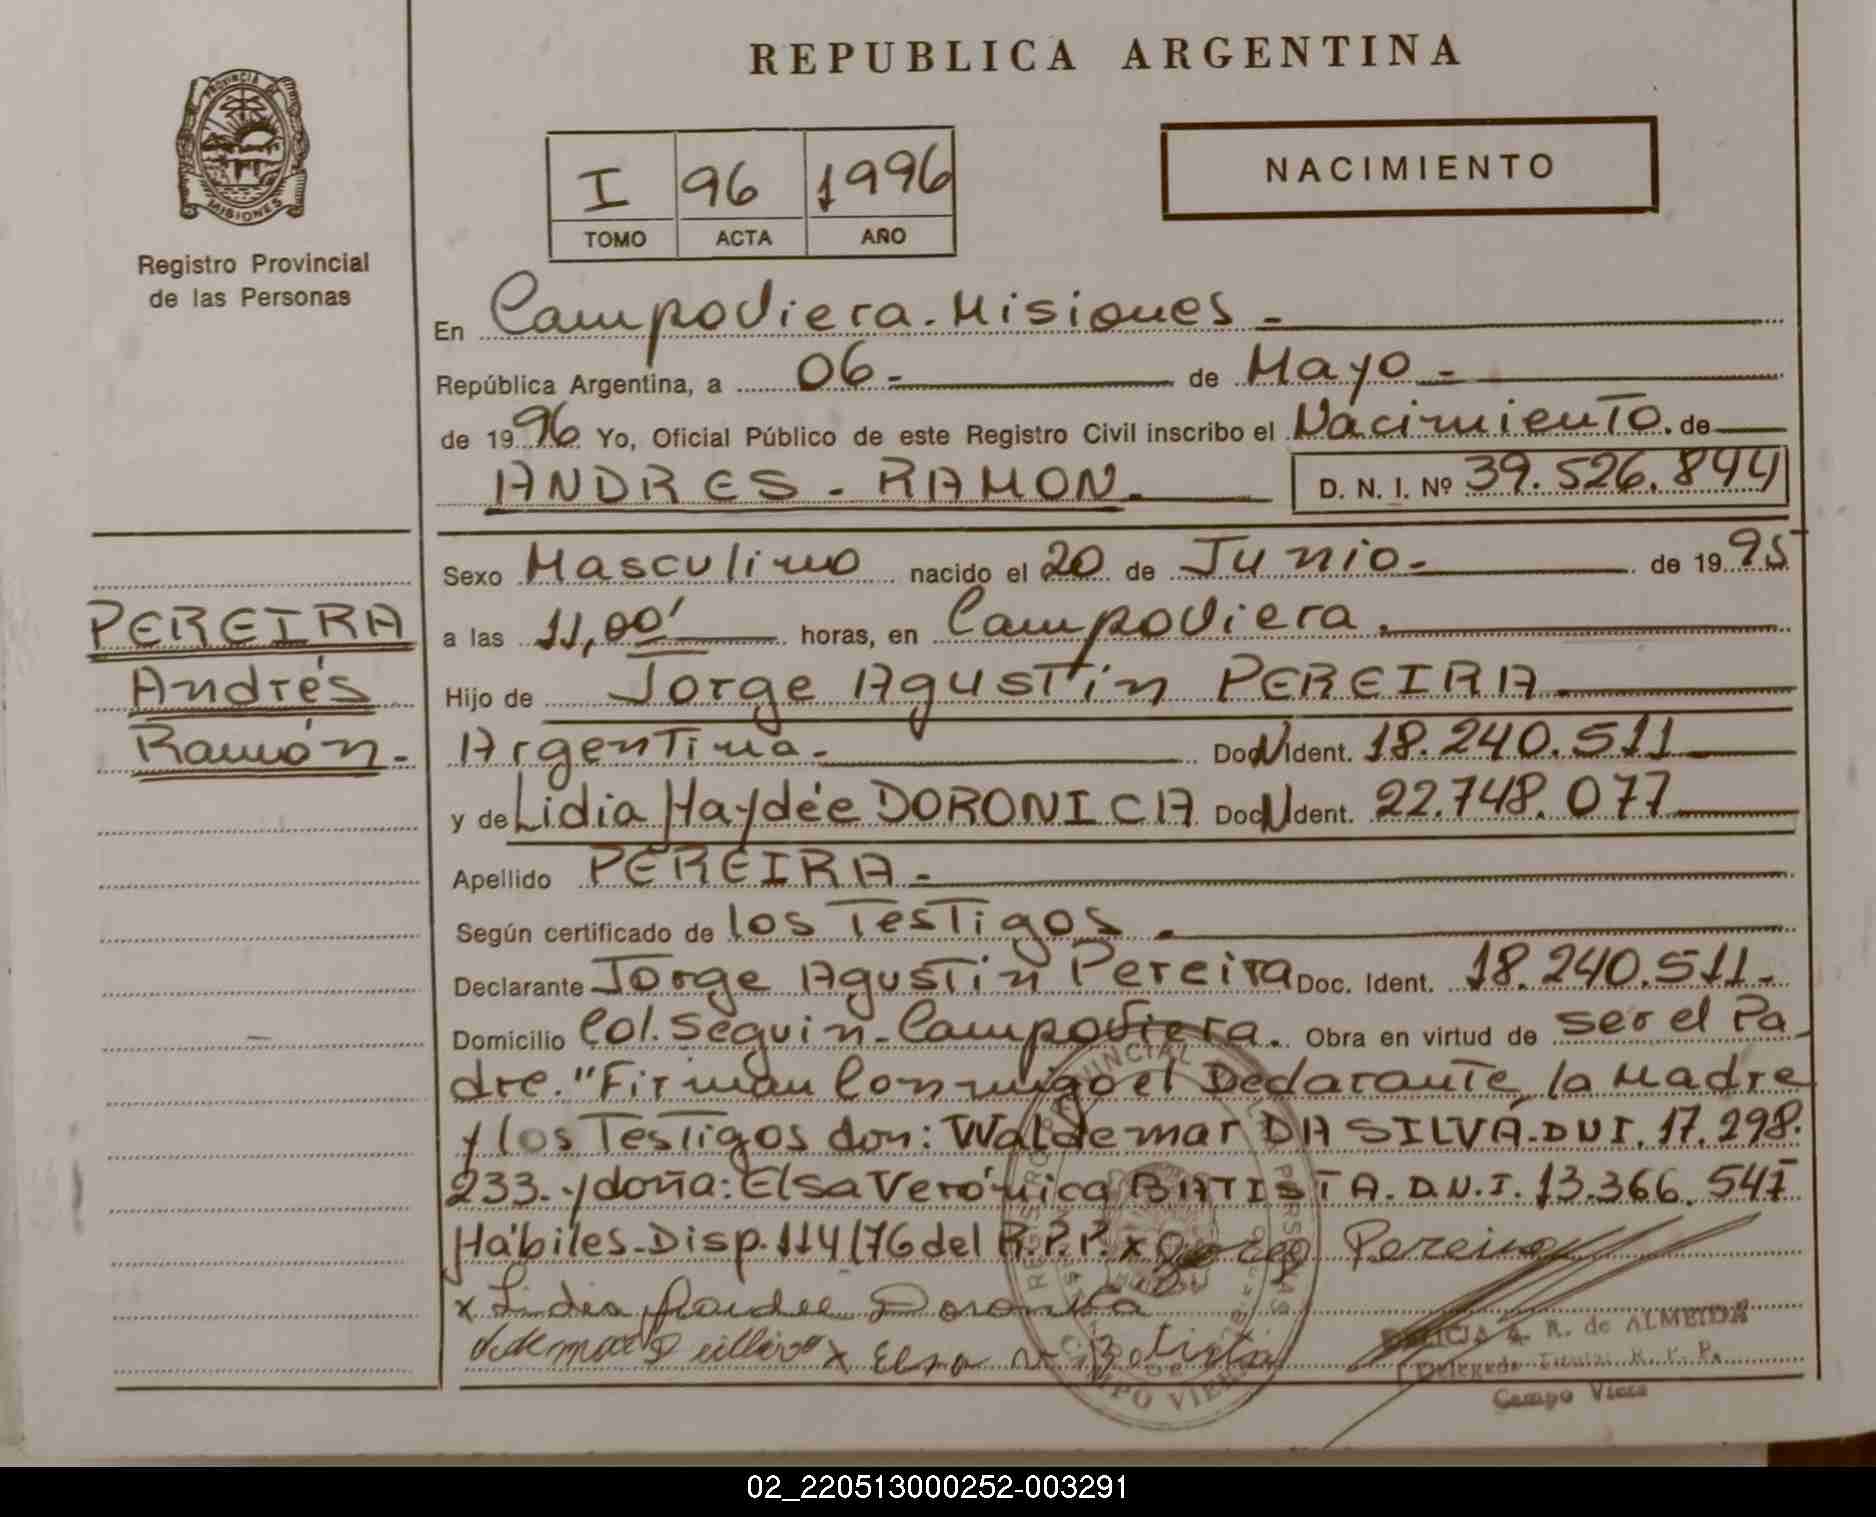 REPUBLICA ARGENTINA
PROVINCIA DE
MISIONES
Registro Provincial
de las Personas
I 96 1996
TOMO ACTA AÑO
NACIMIENTO
En Campo Viera. Misiones -
República Argentina, a 06- de Mayo -
de 1996 Yo, Oficial Público de este Registro Civil inscribo el Nacimiento. de
ANDRES - RAMON. D. N. I. Nº 39.526.894
PEREIRA
Andrés
Ramón.-
Sexo Masculino nacido el 20 de Junio.- de 1995
a las 11,00' horas, en Campo Viera.
Hijo de Jorge Agustín PEREIRA.
Argentina. Doc N Ident. 18.240.511
y de Lidia Haydée DORONICA Doc N Ident. 22.748.077
Apellido PEREIRA.-
Según certificado de los Testigos.
Declarante Jorge Agustín Pereira Doc. Ident. 18.240.511.-
Domicilio Col. Seguin - Campo Viera. Obra en virtud de ser el Pa-
dre. "Firman Conmigo el Declarante, la Madre
y los Testigos don: Waldemar DA SILVA. DNI. 17.298.
233.- y doña: Elsa Verónica BATISTA. D.N.I. 13.366.547
Hábiles-Disp. 114/76 del R.P.P. x Jorge Pereira
x Lidia Haidee Doronica
x Elsa V Batista
R. de ALMEIDA
Delegada Titular R. P. P.
Campo Viera
REGISTRO PROVINCIAL PERSONAS
CAMPO VIERA
02_220513000252-003291